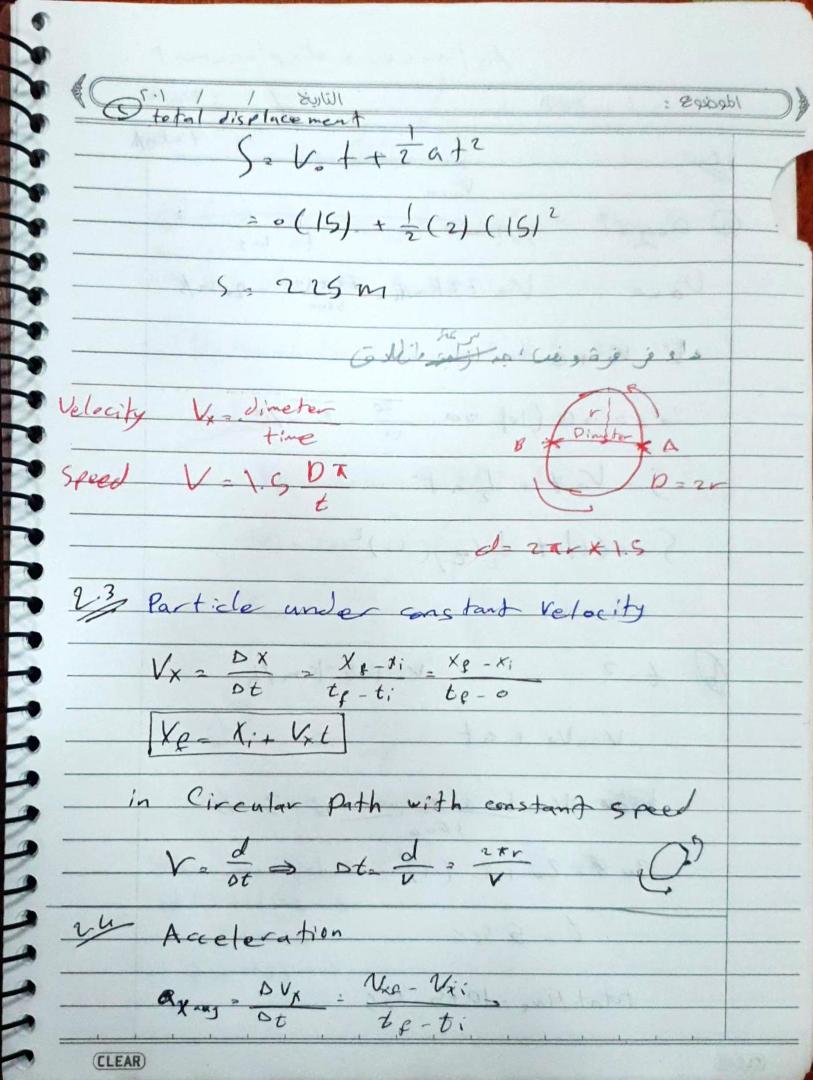 الموضوع : التاريخ / / ٢٠١
⑤ total displacement
S = V₀ t + 1/2 a t²
= 0 (15) + 1/2 (2) (15)²
S = 225 m
Velocity Vx = dimeter / time
Speed V = 1.5 Dπ / t
r
Dimeter
B A
D = 2r
d = 2πr × 1.5
2.3 Particle under constant velocity
Vx = Δx / Δt = xf - xi / tf - ti = xf - xi / tf - 0
Xf = Xi + Vxt
in Circular path with constant speed
V = d / Δt ⇒ Δt = d / V = 2πr / V
2.4 Acceleration
ax avg = ΔVx / Δt = Vxf - Vxi / tf - ti
CLEAR